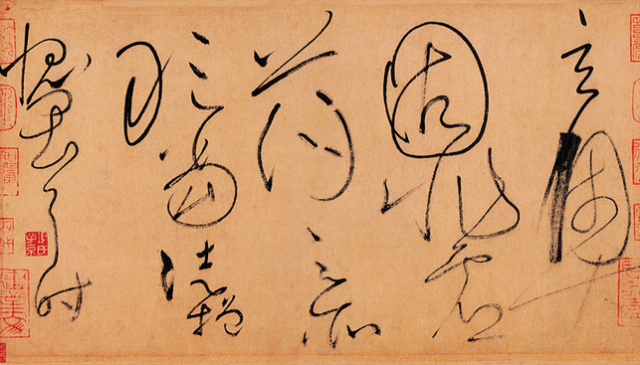 玄奧
固非虛
蕩之所
敢當徒增
愧畏耳時